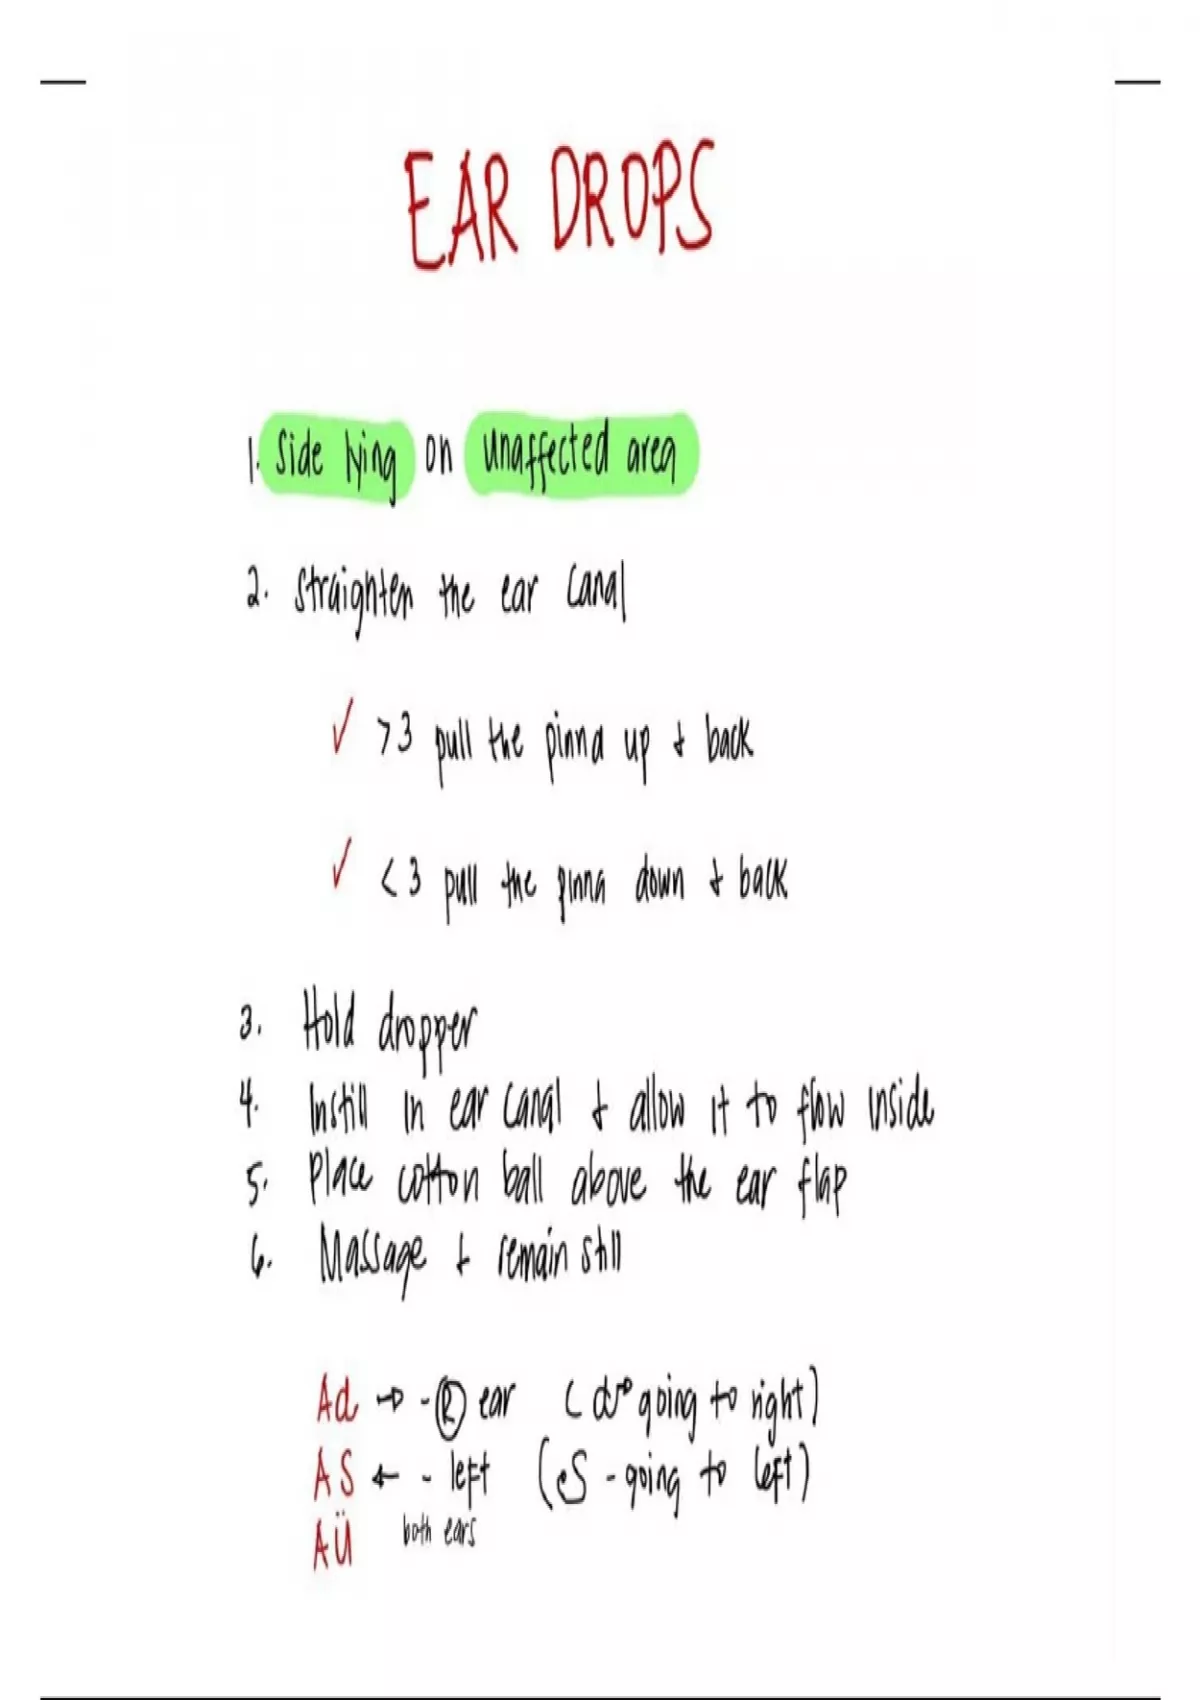 EAR DROPS
1. Side lying on unaffected area
2. Straighten the ear canal
✓ >3 pull the pinna up & back
✓ <3 pull the pinna down & back
3. Hold dropper
4. Instill in ear canal & allow it to flow inside
5. Place cotton ball above the ear flap
6. Massage & remain still
Ad → - Ⓡ ear (d→ going to right)
AS ← - left (←S - going to left)
AÜ both ears